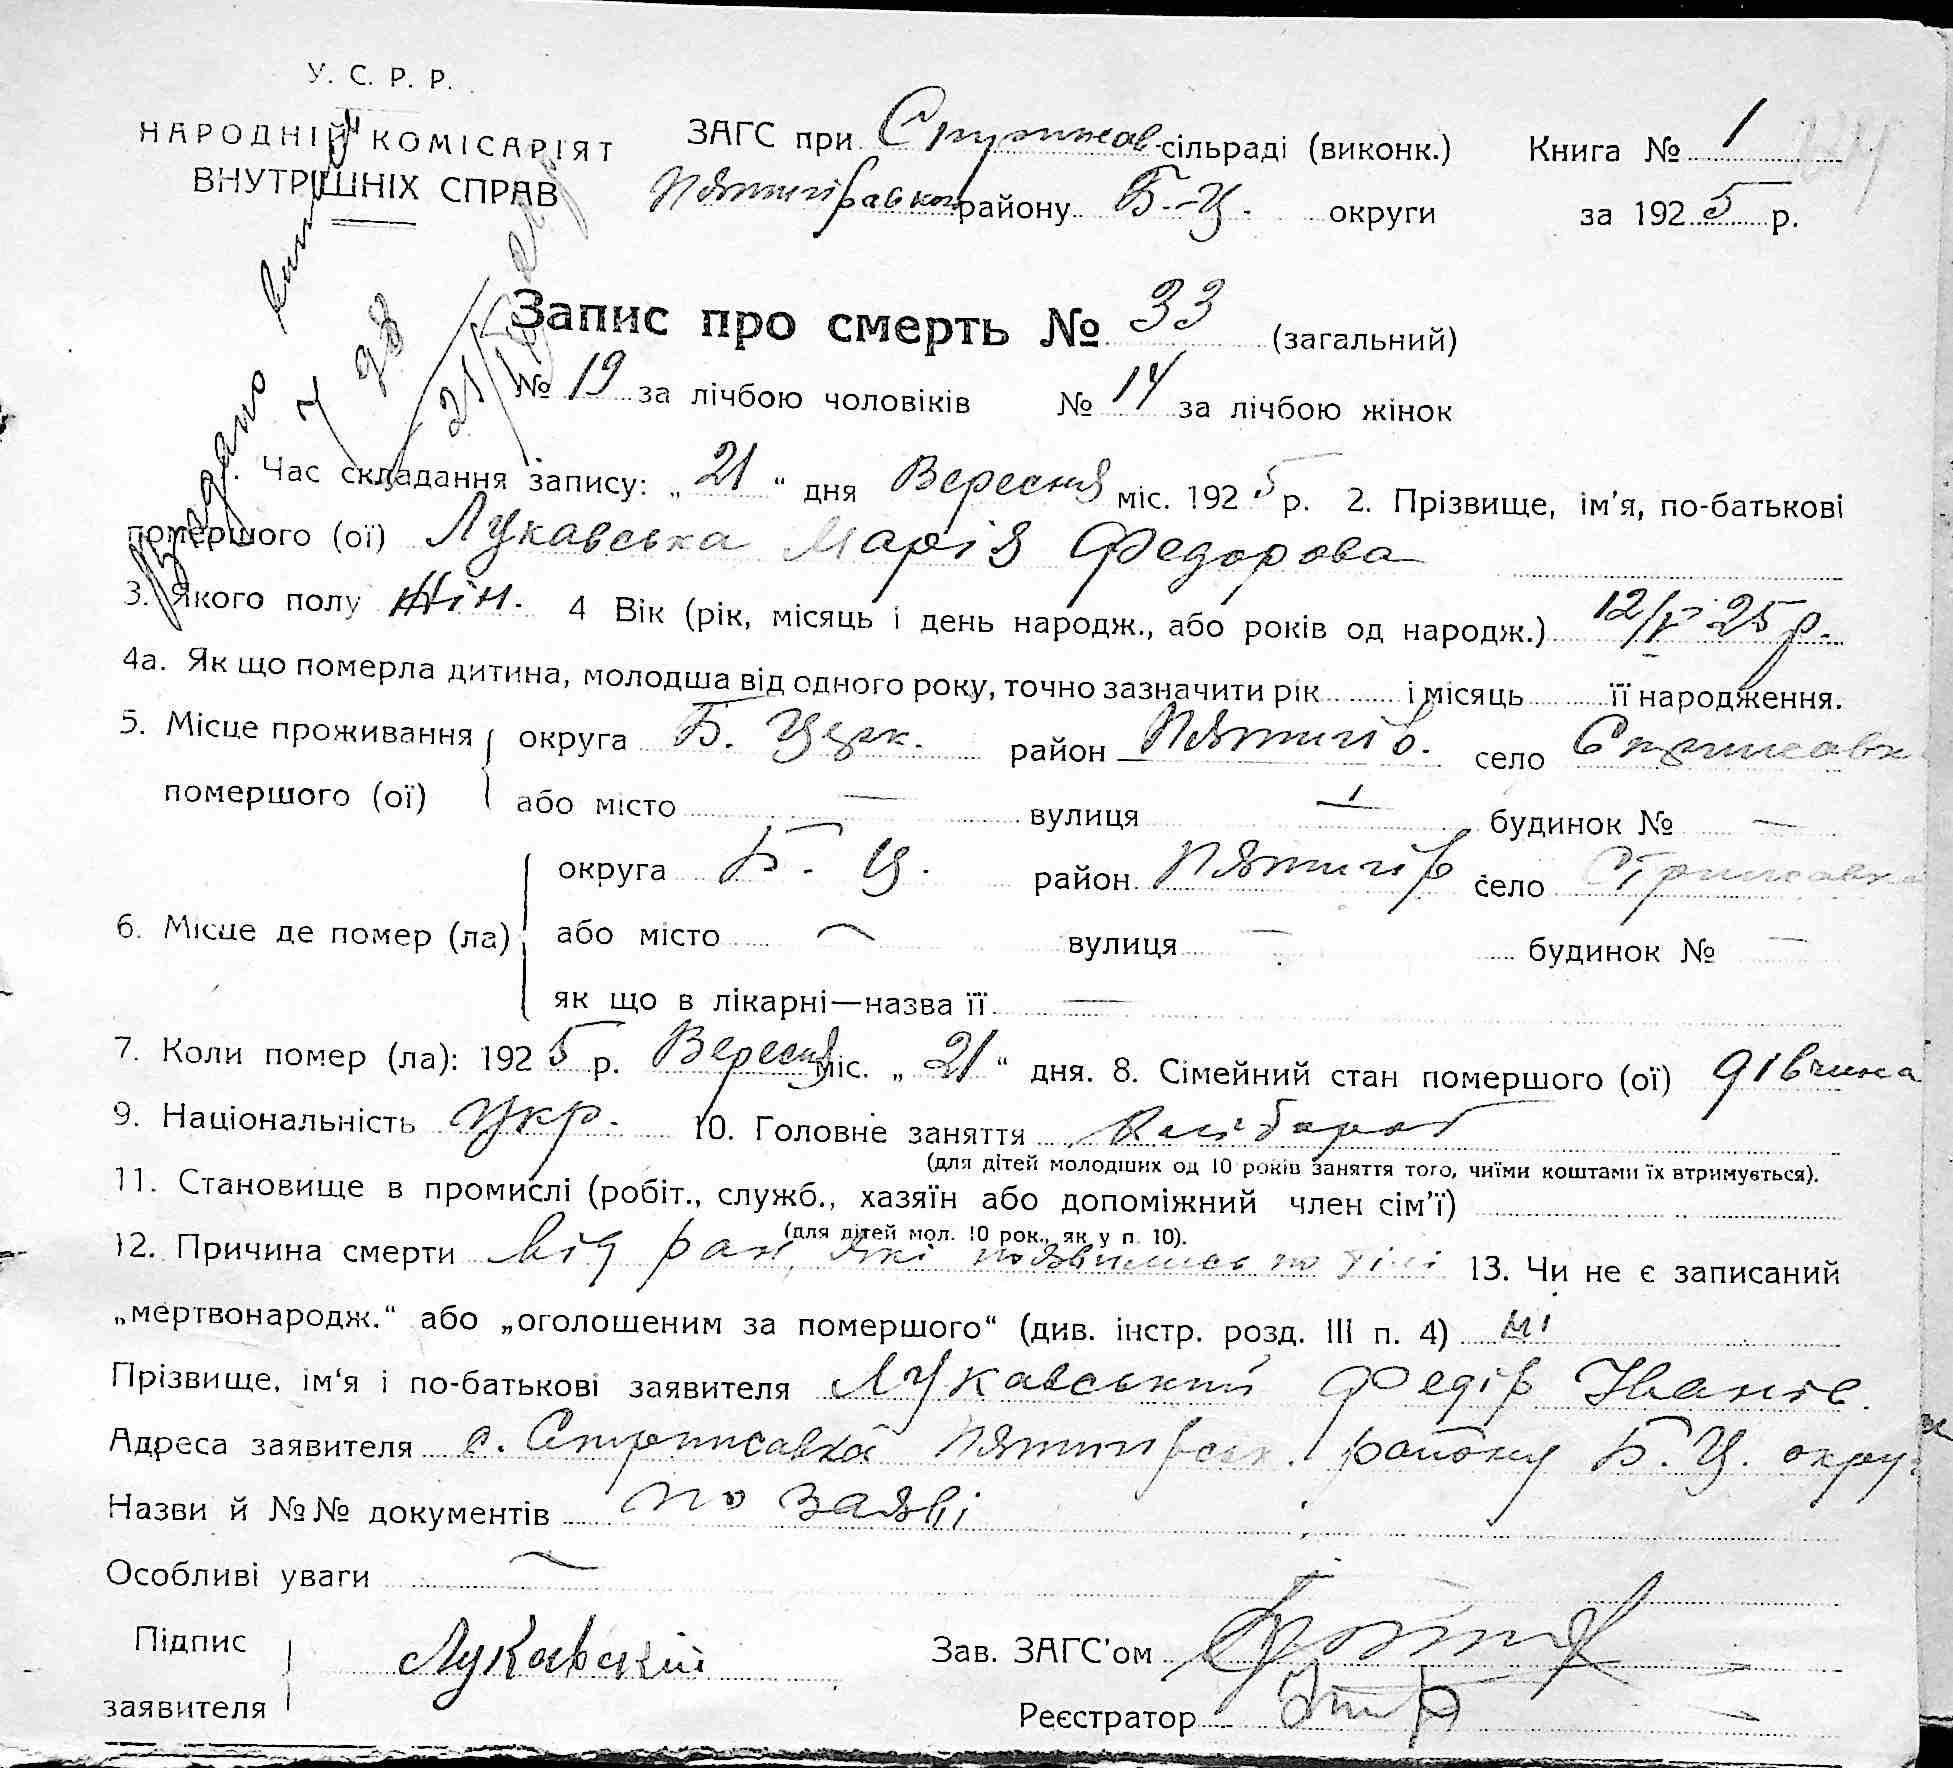 У. С. Р. Р.
НАРОДНІЙ КОМІСАРІЯТ
ВНУТРІШНІХ СПРАВ
ЗАГС при Стрижав-сільраді (виконк.) Книга № 1
Пятигірського району Б.-Ц. округи за 1925 р.
Видано
Запис про смерть № 33 (загальний)
№ 19 за лічбою чоловіків № 14 за лічбою жінок
Час складання запису: „21“ дня Вересня міс. 1925 р. 2. Прізвище, ім'я, по-батькові
помершого (ої) Лукавська Марія Федорова
3. Якого полу жін. 4 Вік (рік, місяць і день народж., або років од народж.) 12/V 25 р.
4а. Як що померла дитина, молодша від одного року, точно зазначити рік і місяць її народження.
5. Місце проживання помершого (ої) округа Б. Церк. район Пятигір. село Стрижавк
або місто — вулиця — будинок № —
6. Місце де помер (ла) округа Б. Ц. район Пятигір село Стрижавка
або місто — вулиця — будинок № —
як що в лікарні—назва її —
7. Коли помер (ла): 1925 р. Вересня міс. „21“ дня. 8. Сімейний стан помершого (ої) дівчина
9. Національність Укр. 10. Головне заняття хлібороб
(для дітей молодших од 10 років заняття того, чиїми коштами їх втримується).
11. Становище в промислі (робіт., служб., хазяїн або допоміжний член сім'ї)
(для дітей мол. 10 рок., як у п. 10).
12. Причина смерти від ран, які появились по тілі 13. Чи не є записаний
„мертвонародж.“ або „оголошеним за помершого“ (див. інстр. розд. III п. 4) ні
Прізвище, ім'я і по-батькові заявителя Лукавський Федір Іванів.
Адреса заявителя с. Стрижавка Пятигірськ. району Б. Ц. округ
Назви й №№ документів по заяві
Особливі уваги —
Підпис заявителя Лукавскій Зав. ЗАГС'ом
Реєстратор